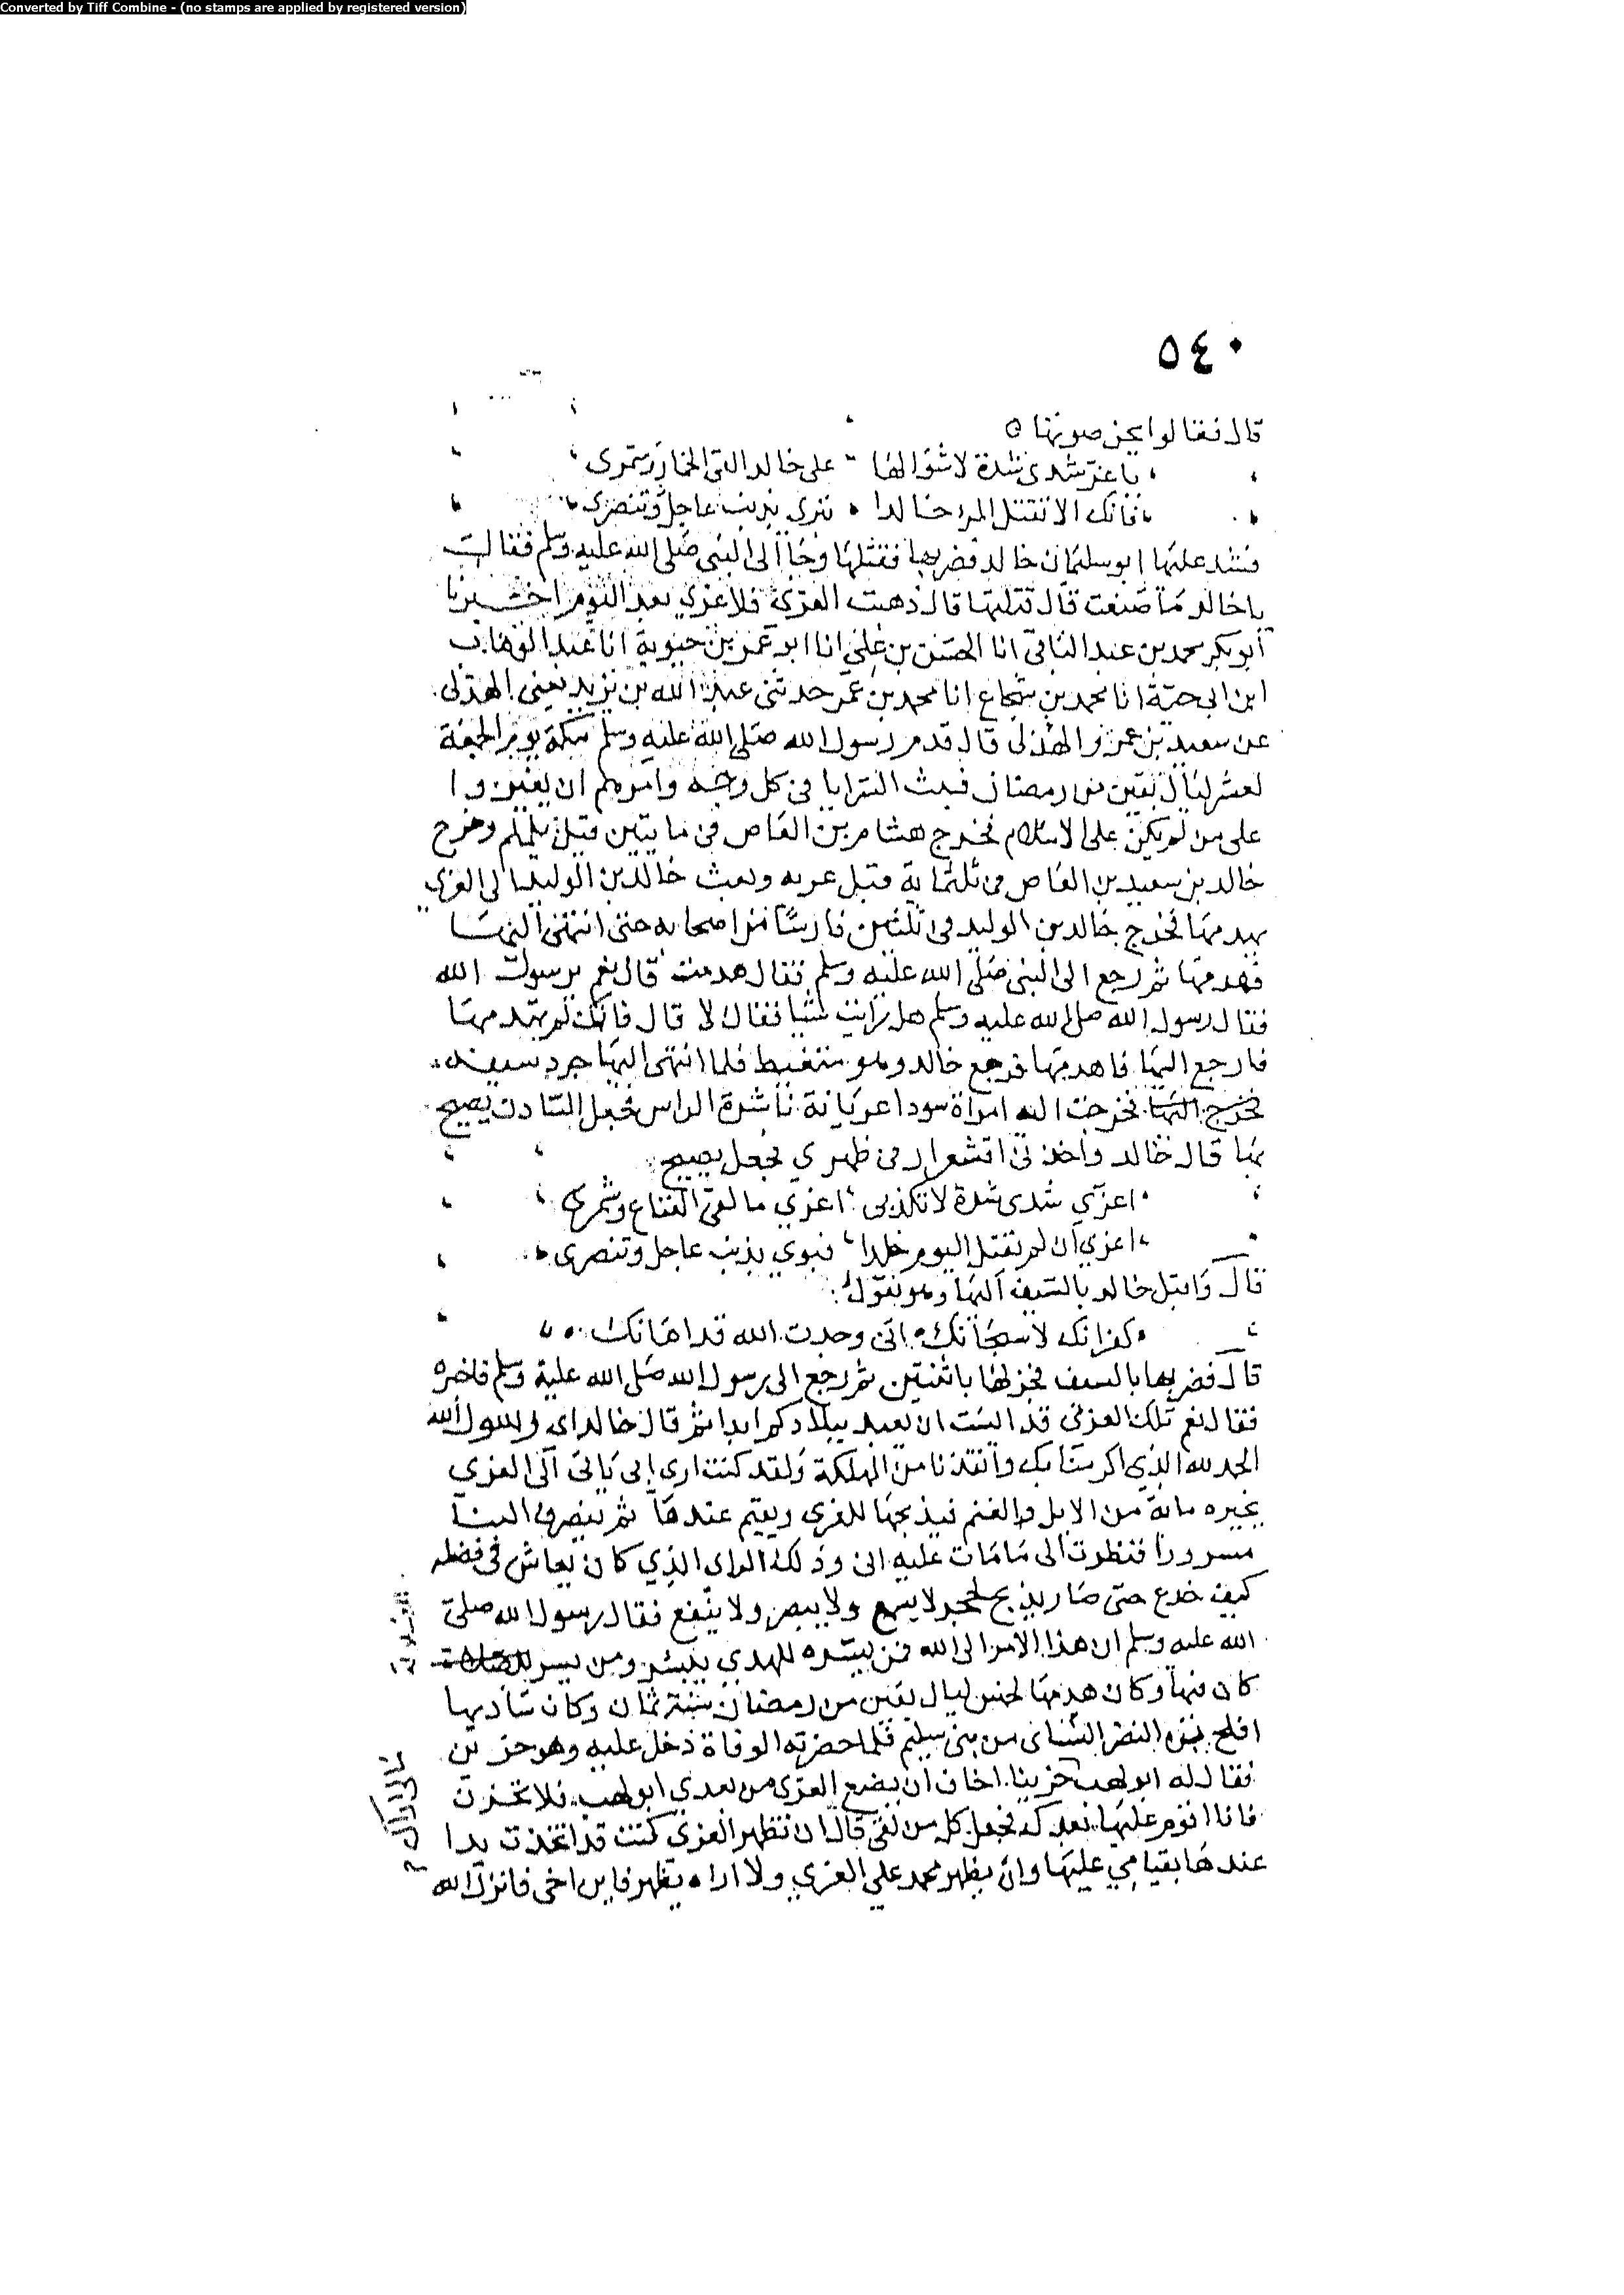 Converted by Tiff Combine - (no stamps are applied by registered version)
٥٤٠
قال فقالوا يحرضونها
يا عز شدي شدة لا شوا لها على خالد القي الخمار وشمري
فانك الا تقتلي المرء خالدا تبوي بذنب عاجل وتنصري
فشد عليها ابو سليمان خالد فضربها فقتلها وجاء الى النبي صلى الله عليه وسلم فقال
يا خالد ما صنعت قال قتلتها قال ذهبت العزى فلا عزي بعد اليوم اخبرنا
أبو بكر محمد بن عبد الباقي انا الحسن بن علي انا ابو عمر بن حيوية انا عبد الوهاب
ابن ابي حية انا محمد بن شجاع انا محمد بن عمر حدثني عبد الله بن يزيد يعني الهذلي
عن سعيد بن عمرو الهذلي قال قدم رسول الله صلى الله عليه وسلم مكة يوم الجمعة
لعشر ليال بقين من رمضان فبث السرايا في كل وجه وامرهم ان يغيروا
على من لم يكن على الاسلام فخرج هشام بن العاص في مايتين قبل يلملم وخرج
خالد بن سعيد بن العاص في ثلثماية قبل عرنه وبعث خالد بن الوليد الى العزي
يهدمها فخرج خالد بن الوليد في ثلثين فارسا من اصحابه حتى انتهى اليها
فهدمها ثم رجع الى النبي صلى الله عليه وسلم فقال هدمت قال نعم يرسول الله
فقال رسول الله صلى الله عليه وسلم هل رايت شيا فقال لا قال فانك لم تهدمها
فارجع اليها فاهدمها فرجع خالد وهو متغيظ فلما انتهى اليها جرد سيفه
فخرج اليها فخرجت اليه امراة سودا عريانة ناشرة الراس فجعل السادن يصيح
بها قال خالد واخذني اقشعرار في ظهري فجعل يصيح
اعزي شدي شدة لا تكذبي اعزي ما لقي القناع وشمري
اعزي ان لم تقتلي اليوم خلدا فبوي بذنب عاجل وتنصري
قال واقبل خالد بالسيف اليها وهو يقول
كفرانك لا سبحانك اني وجدت الله قد اهانك
قال فضربها بالسيف فجزلها باثنتين ثم رجع الى رسول الله صلى الله عليه وسلم فاخبره
فقال نعم تلك العزى قد ايست ان تعبد ببلادكم ابدا ثم قال خالد اي رسول الله
الحمد لله الذي اكرمنا بك وانقذنا من الهلكة ولقد كنت ارى ابي ياتي الى العزي
بخيره ماية من الابل والغنم فيذبحها للعزي ويقيم عندها ثم ينصرف الينا
مسرورا فنظرت الى ما مات عليه ابي وذلك الراي الذي كان يعاش في فضله
كيف خدع حتى صار يذبح لحجر لا يسمع ولا يبصر ولا ينفع فقال رسول الله صلى
الله عليه وسلم ان هذا الامر الى الله فمن يسره للهدي يتيسر ومن يسر للضلالة
كان فيها وكان هدمها لخمس ليال بقين من رمضان سنة ثمان وكان سادنها
افلح بن النضر الشيباني من بني سليم فلما حضرته الوفاة دخل عليه وهو حزين
فقال له ابو لهب حزينا اخاف ان يضيع العزى من بعدي ابو لهب فلا تحزن
فانا اقوم عليها بعدك فجعل كل من لقي قال ان تظهر العزى كنت قد اتخذت يدا
عندها بقيامي عليها وان يظهر محمد على العزي ولا اراه يظهر فابن اخي فانزل الله